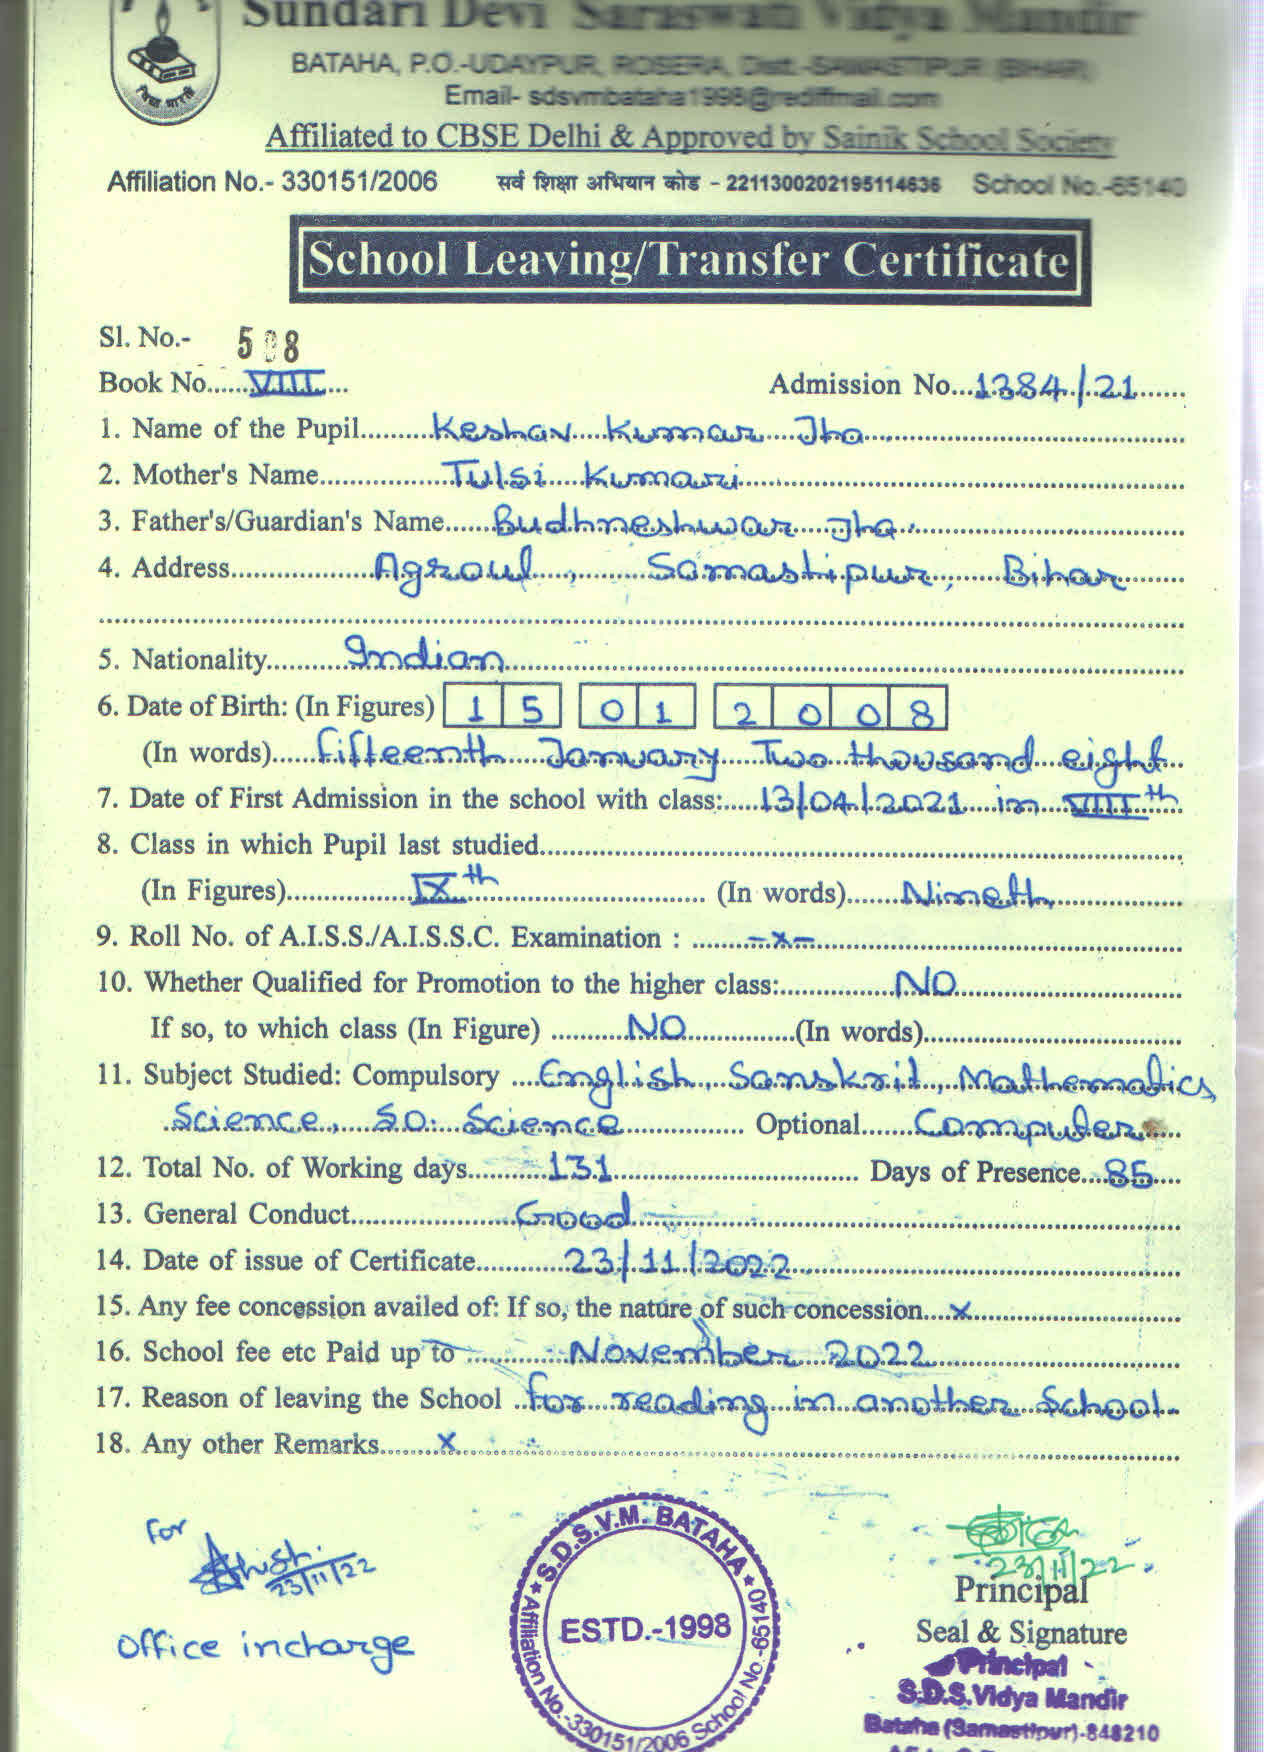 Sundari Devi Saraswati Vidya Mandir
BATAHA, P.O.-UDAYPUR, ROSERA, Distt.-SAMASTIPUR (BIHAR)
Email- sdsvmbataha1998@rediffmail.com
Affiliated to CBSE Delhi & Approved by Sainik School Society
Affiliation No.- 330151/2006 सर्व शिक्षा अभियान कोड - 2211300202195114636 School No.-65140
School Leaving/Transfer Certificate
Sl. No.- 5 8
Book No......VIII... Admission No...1384/21......
1. Name of the Pupil.........Keshav Kumar Jha.........
2. Mother's Name.........Tulsi Kumari.........
3. Father's/Guardian's Name......Budhneshwar Jha.........
4. Address.........Agraul, Samastipur, Bihar......
5. Nationality.........Indian.........
6. Date of Birth: (In Figures) 1 5 0 1 2 0 0 8
(In words)....fifteenth January Two thousand eight...
7. Date of First Admission in the school with class:....13/04/2021 in VIIIth
8. Class in which Pupil last studied.........
(In Figures).........IXth......... (In words)......Nineth.........
9. Roll No. of A.I.S.S./A.I.S.S.C. Examination : ......-x-.........
10. Whether Qualified for Promotion to the higher class:.........NO.........
If so, to which class (In Figure) .........NO.........(In words).........
11. Subject Studied: Compulsory ....English, Sanskrit, Mathematics,
Science, SO. Science......... Optional......Computer....
12. Total No. of Working days.........131......... Days of Presence...85...
13. General Conduct.........Good.........
14. Date of issue of Certificate.........23/11/2022.........
15. Any fee concession availed of: If so, the nature of such concession....x.........
16. School fee etc Paid up to .........November 2022.........
17. Reason of leaving the School ..for reading in another School.
18. Any other Remarks......x.........
For
23/11/22
Office incharge
S.D.S.V.M. BATAHA
ESTD.-1998
Affiliation No.-330151/2006 School No.-65140
23/11/22
Principal
Seal & Signature
Principal
S.D.S.Vidya Mandir
Bataha (Samastipur)-848210